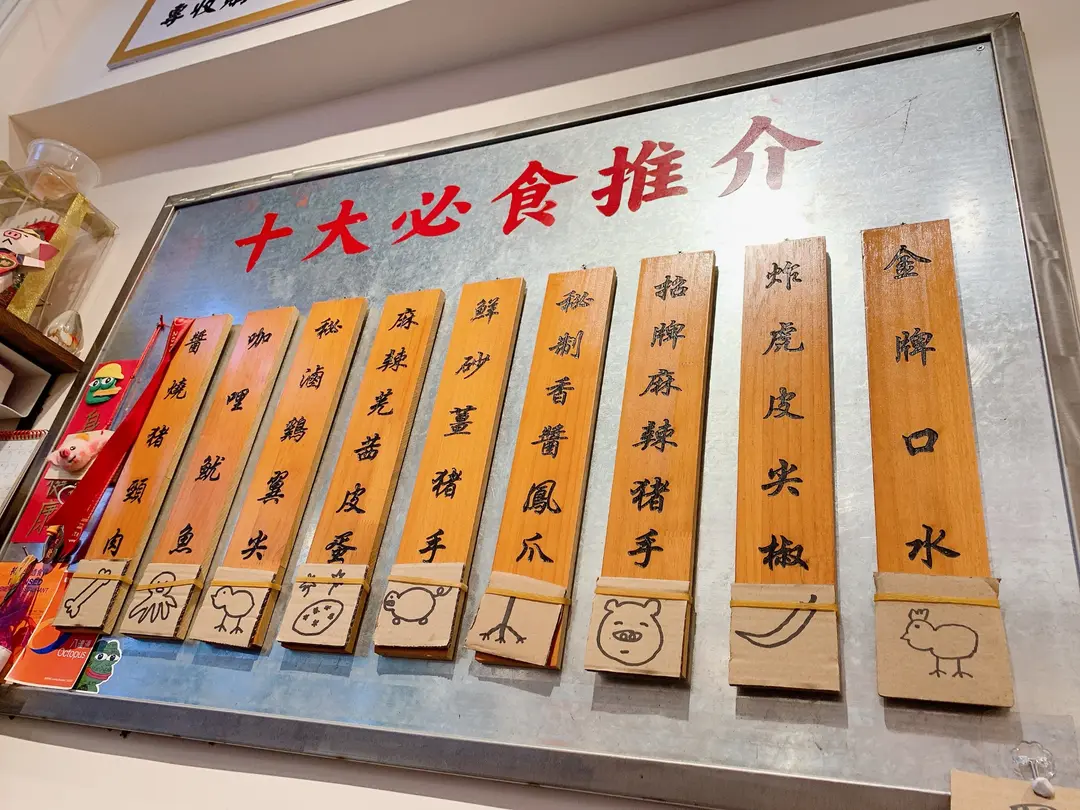 專收
十大必食推介
金牌口水
炸虎皮尖椒
招牌麻辣猪手
秘制香醬鳳爪
鮮砂薑猪手
麻辣芫茜皮蛋
秘滷鷄翼尖
咖哩魷魚
醬燒猪頭肉
自
Octopus